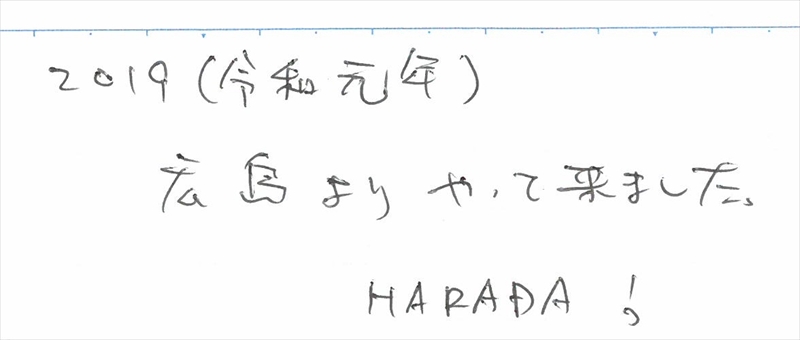 2019(令和元年)
広島よりやって来ました。
HARADA!